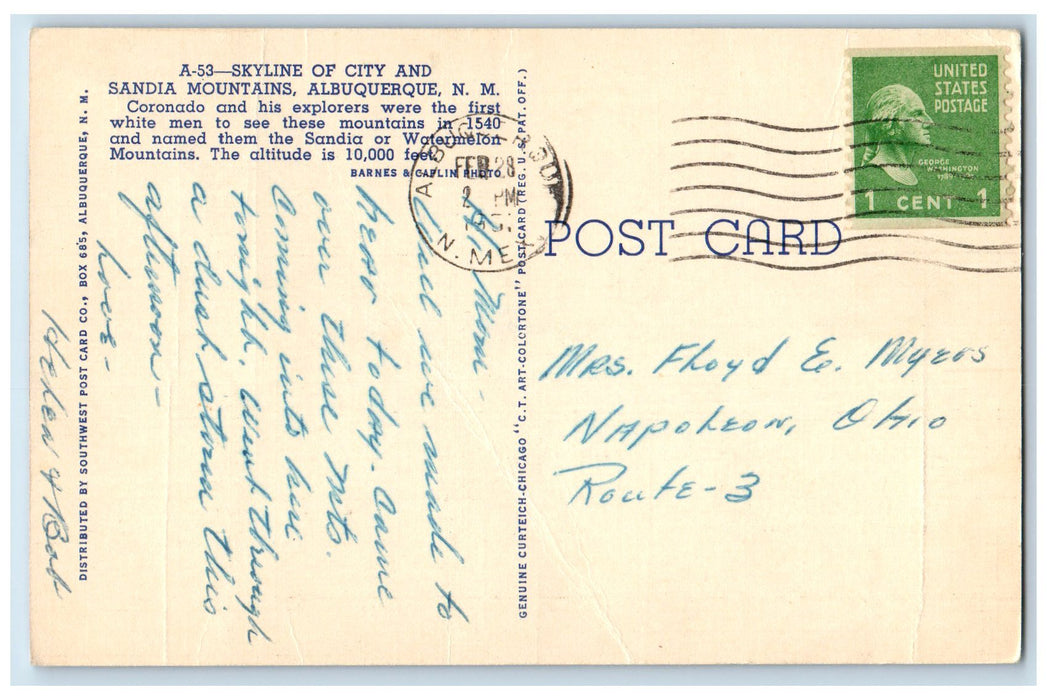 A-53—SKYLINE OF CITY AND
SANDIA MOUNTAINS, ALBUQUERQUE, N. M.
Coronado and his explorers were the first
white men to see these mountains in 1540
and named them the Sandia or Watermelon
Mountains. The altitude is 10,000 feet.
BARNES & CAPLIN PHOTO
Hi Mom -
Well we made to
here today. Came
over these mts.
Coming into here
tonight. Went through
a dust storm this
afternoon -
Love -
Helen & Bob
DISTRIBUTED BY SOUTHWEST POST CARD CO., BOX 685, ALBUQUERQUE, N. M.
GENUINE CURTEICH-CHICAGO "C.T. ART-COLORTONE" POST CARD (REG. U.S. PAT. OFF.)
ALBUQUERQUE
FEB 28
2 PM
N. MEX.
UNITED
STATES
POSTAGE
GEORGE
WASHINGTON
1789
1 CENT 1
POST CARD
Mrs. Floyd E. Myers
Napoleon, Ohio
Route-3